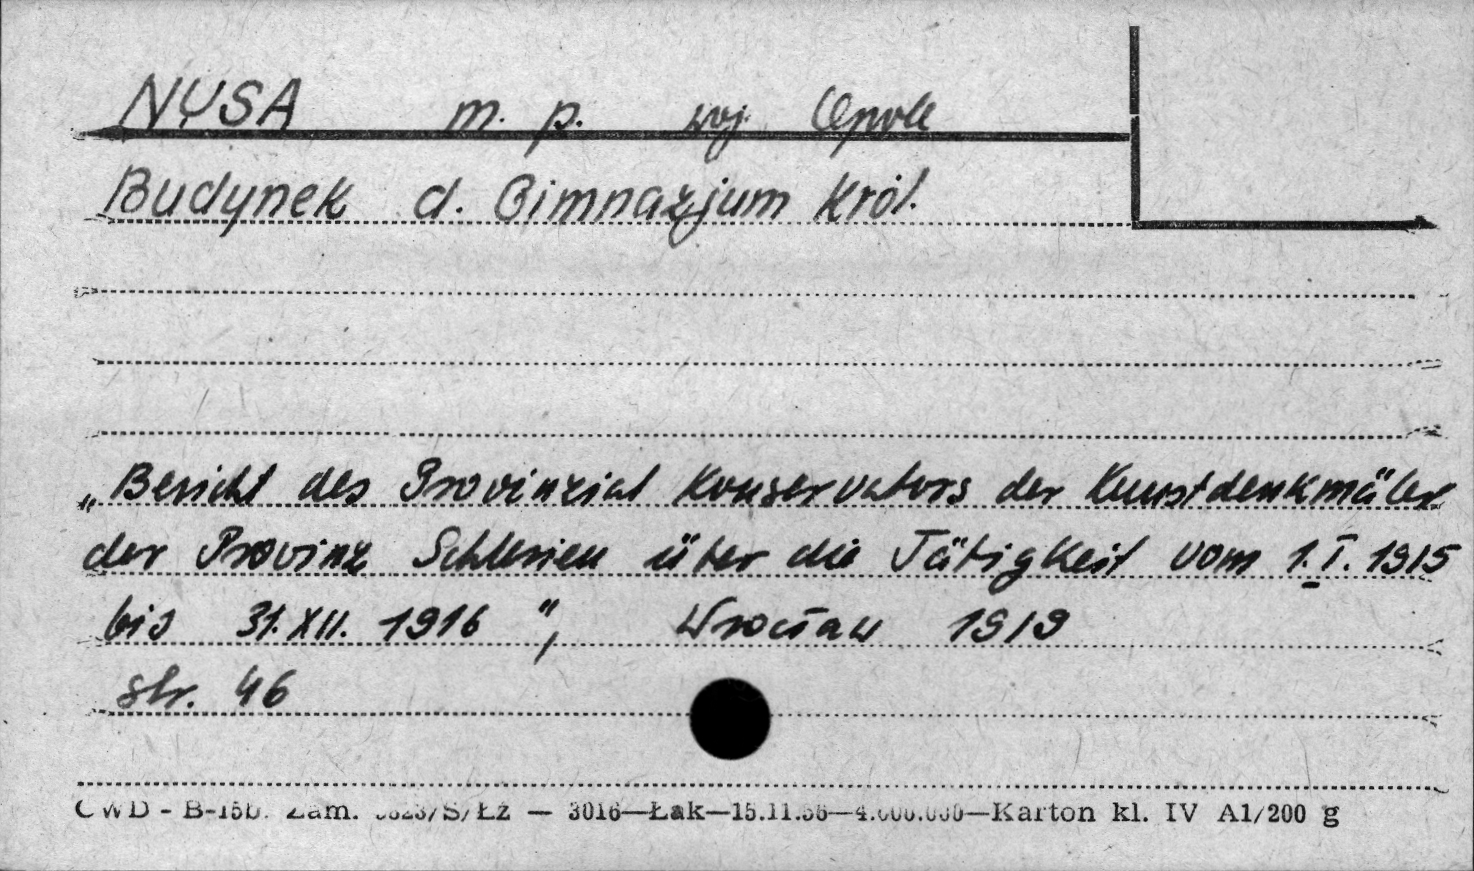 NYSA m. p. woj. Opole
Budynek d. Gimnazjum Król.
„Bericht des Provinzial Konservators der Kunstdenkmäler
der Provinz Schlesien über die Tätigkeit vom 1.I.1915
bis 31.XII.1916", Wrocław 1919
str. 46
CWD - B-15b. Zam. /S/Łż — 3016—Łak—15.11.56—4.000.000—Karton kl. IV A1/200 g